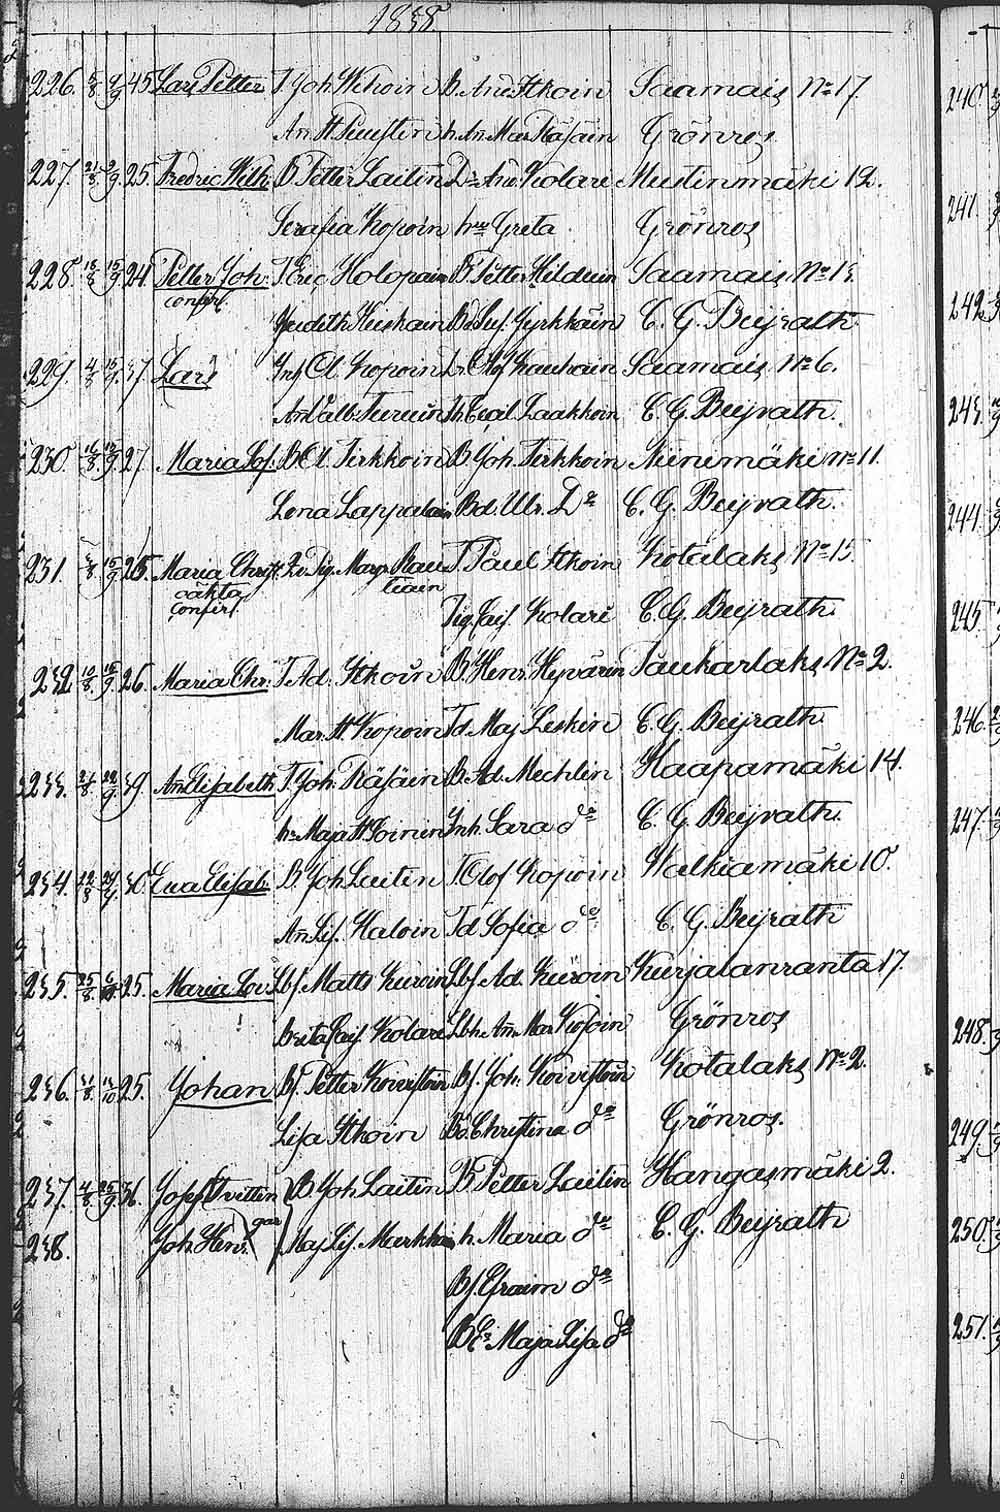 1838.
226. 5/8 9/9 45 Lars Petter T. Joh. Wehvin B. And. Itkoin Saamais No 17.
An. St. Puustin h. An. Mar. Räsäin Grönros
227. 21/8 9/9 25. Fredric Wilh. B. Petter Laitin Dr. And. Kolare Mustinmäki 12.
Serafia Kopoin hru Greta Grönros
228. 18/8 15/9 24. Petter Joh. T. Eric Holopain B. Petter Hilduin Saamais No 13.
confirt.
Judith Heiskain Bd. Lus. Jyrkkäin C. G. Beijrath
229. 4/8 15/9 37. Lars Inh. Cl. Kopoin Dr. Olof Kauhain Saamais No 6.
An. Valb. Turuin Ih. Cecil. Laakkoin C. G. Beijrath
230. 16/8 15/9 27. Maria Sof. B. Cl. Pirkkoin B. Joh. Pirkkoin Niinimäki No 11.
Lena Lappalain Bd. Ulr. Do C. G. Beijrath.
231. 5/8 15/9 25. Maria Christ. Marg. Rau- T. Paul Itkoin Kotalaks No 15.
oäkta tiain
confirt.
Pig. Caj. Kolare C. G. Beijrath.
232. 10/8 16/9 26. Maria Chr. T. Ad. Itkoin B. Henr. Hyvärin Paukarlaks No 2.
Mar. St. Kopoin Td. Maj. Leskin C. G. Beijrath
233. 21/8 22/9 39. An. Elisabeth T. Joh. Räsäin B. Ad. Mechlin Haapamäki 14.
h. Maja St. Soinin Inh. Sara do C. G. Beijrath.
234. 12/8 24/9 30. Eva Elisab. B. Joh. Laitin T. Olof Kopoin Walkiamäki 10.
An. Lis. Haloin Td Sofia do C. G. Beijrath
235. 25/8 6/10 25. Maria Lov. Lbf. Matts Kuroin Lbf. Ad. Kuroin Kurjalanranta 17.
Brita Caj. Kolare Lbh. An. Mar. Kopoin Grönros
236. 31/8 11/10 25. Johan Bf. Petter Koivistoin Bf. Joh. Koivistoin Kotalaks No 2.
Lisa Itkoin Bd. Christina do Grönros.
237. 4/8 25/9 36. Josef tvillin B. Joh. Laitin B. Petter Laitin Hangasmäki 2.
238. Joh. Henr. gar Maj. Lis. Markkain h. Maria do C. G. Beijrath
Bf. Efraim do
Maja Lisa do
240.
241.
242.
243.
244.
245.
246.
247.
248.
249.
250.
251.